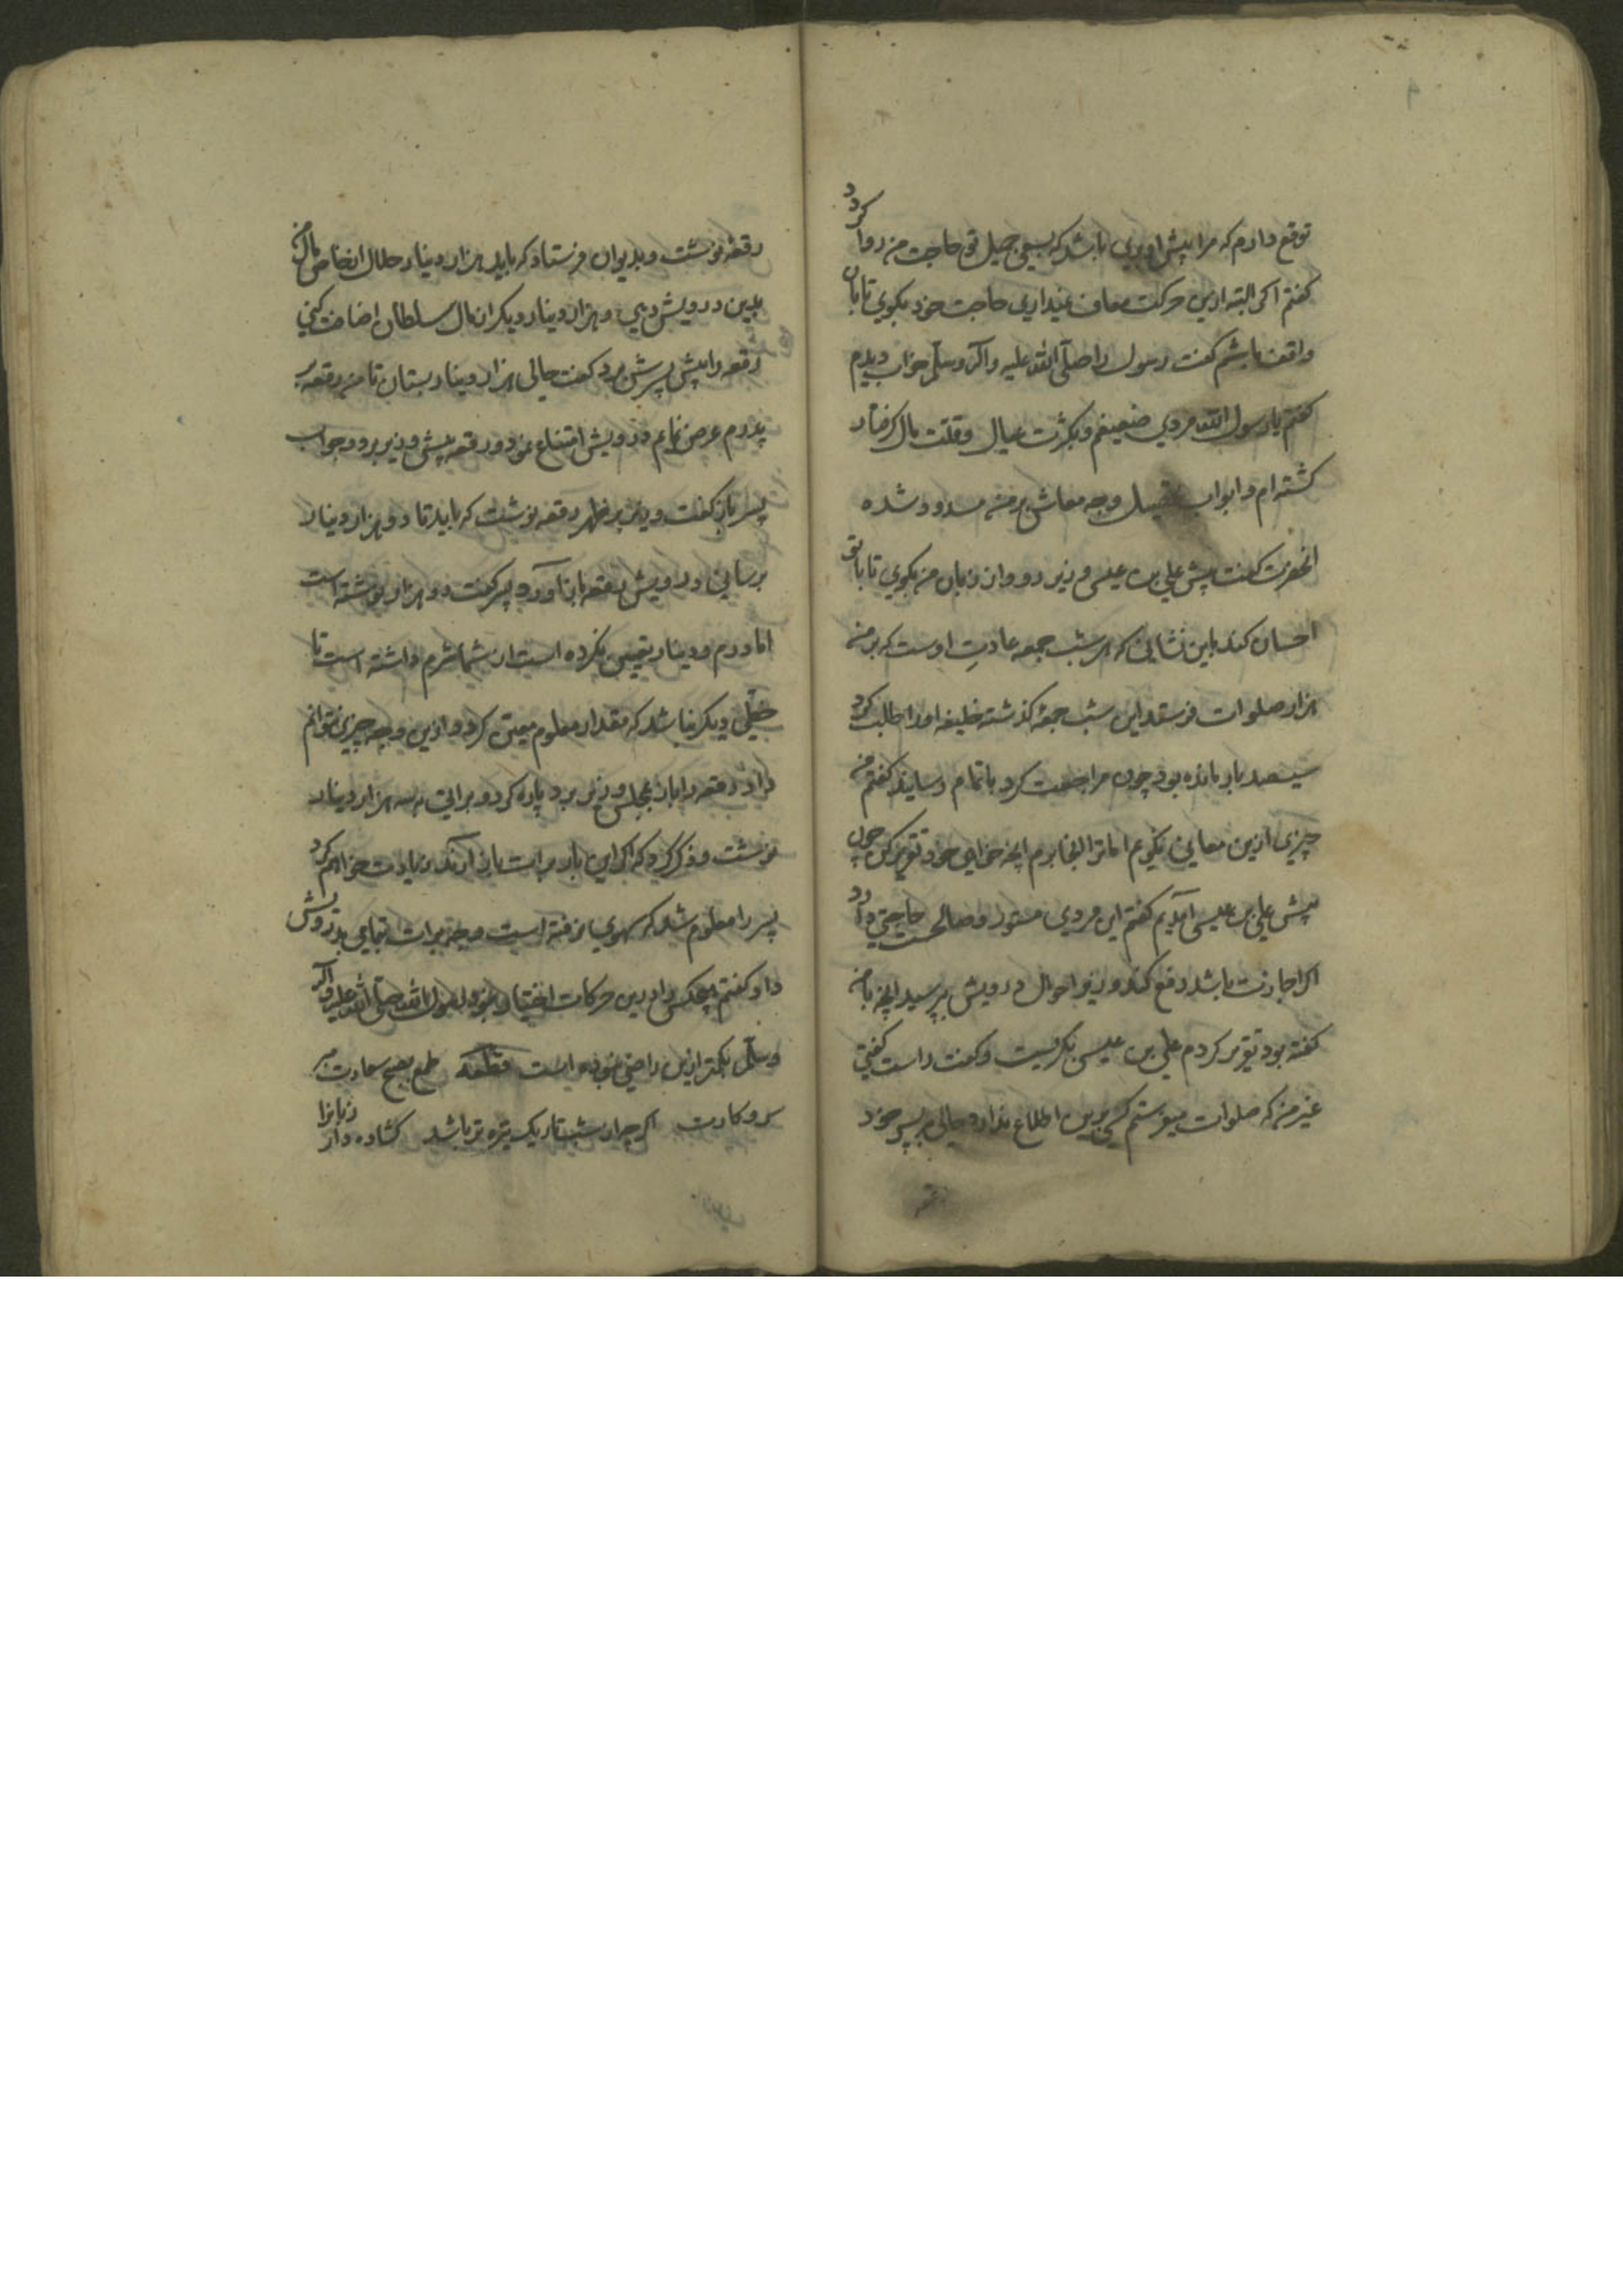 توقع دارم که مرا پیش او بری باشد که بسعی جمیل تو حاجت من روا کردد
کفتم اکر البته ازین حرکت معاف نمیداری حاجت خود بکوی تا بان
واقف باشم کفت رسول را صلّی الله علیه وآله وسلّم بخواب دیدم
کفتم یا رسول الله مردی ضعیفم و بکثرت عیال و قلت مال کرفتار
کشته ام و ابواب وجه معاش بر من مسدود شده
انحضرت کفت پیش علی بن عیسی وزیر رو و از زبان من بکوی تا با تو
احسان کند باین نشانی که هر شب جمعه عادت اوست که بر من
هزار صلوات فرستد این شب جمعه کذشته خلیفه او را طلب کرد
سیصد بار مانده بود چون مراجعت کرد باتمام رسانید کفتم من
چیزی ازین معانی نکویم اما ترا انجا برم انچه خواهی خود تقریر کن چون
پیش علی بن عیسی آمدیم کفتم این مردی مستور و صالحست حاجتی دارد
اکر اجازت باشد رفع کند وزیر احوال درویش پرسید انچه با من
کفته بود تقریر کردم علی بن عیسی بکریست و کفت راست کفتی
غیر من که صلوات میفرستم کسی برین اطلاع ندارد حالی بر پسر خود
رقعه نوشت و بدیوان فرستاد که باید هزار دینار حلال از خاص مال من
بدین درویش دهی و هزار دینار دیکر از مال سلطان اضافت کنی
رقعه را پیش پسرش برد کفت حالی هزار دینار بستان تا من رقعه بر
پدرم عرض نمایم درویش امتناع نمود و رقعه پیش وزیر برد و جواب
پسر باز کفت وزیر بر ظهر رقعه نوشت که باید تا دو هزار دینار
برسانی درویش رقعه باز آورد پسر کفت دو هزار نوشته است
اما درم و دینار تعیین نکرده است از شما شرم داشته است تا
خجلی دیکر نباشد که مقدار معلوم معین کرد و ازین وجه چیزی نتوانم
داد رقعه را باز بمجلس وزیر برد پاره کرد و براتی به سه هزار دینار
نوشت و ذکر کرد که اکر این بار برات باز ارند زیادت خواهم کرد
پسر را معلوم شد که سهوی نرفته است وجه برات بتمامی بدرویش
داد کفتم هیچکس را درین حرکات اختیار نبود رسول الله صلّی الله علیه وآله
وسلّم بکمتر ازین راضی نبوده است قطعه طمع بصبح سعادت مبر
اکر چراز شب تاریک تیره تر باشد کشاده دار زبانرا